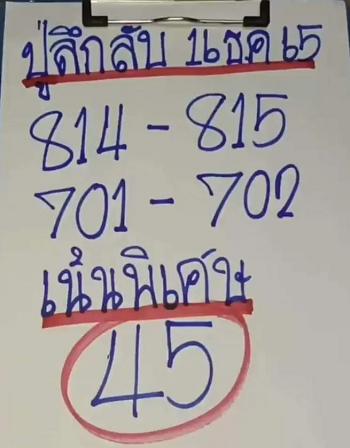 ปู่ลึกลับ 1 ธค 65
814 - 815
701 - 702
เน้นพิเศษ
45